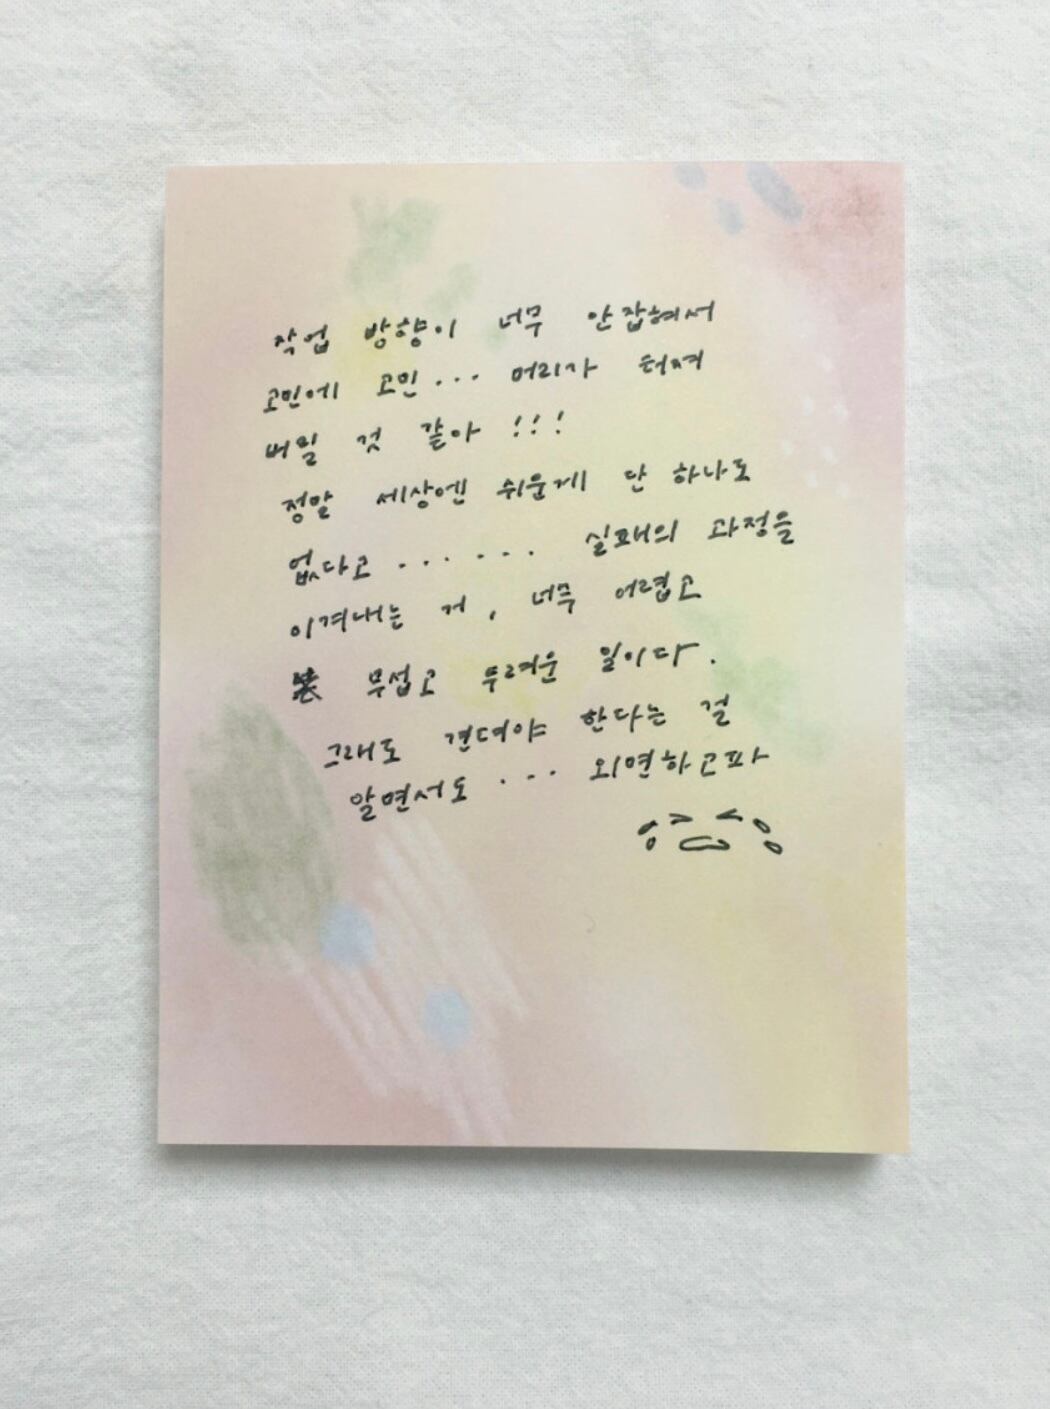 작업 방향이 너무 안잡혀서
고민에 고민... 머리가 터져
버릴 것 같아 !!!
정말 세상엔 쉬운게 단 하나도
없다고 ...... 실패의 과정을
이겨내는 거, 너무 어렵고
무섭고 두려운 일이다.
그래도 견뎌야 한다는 걸
알면서도 ... 외면하고파